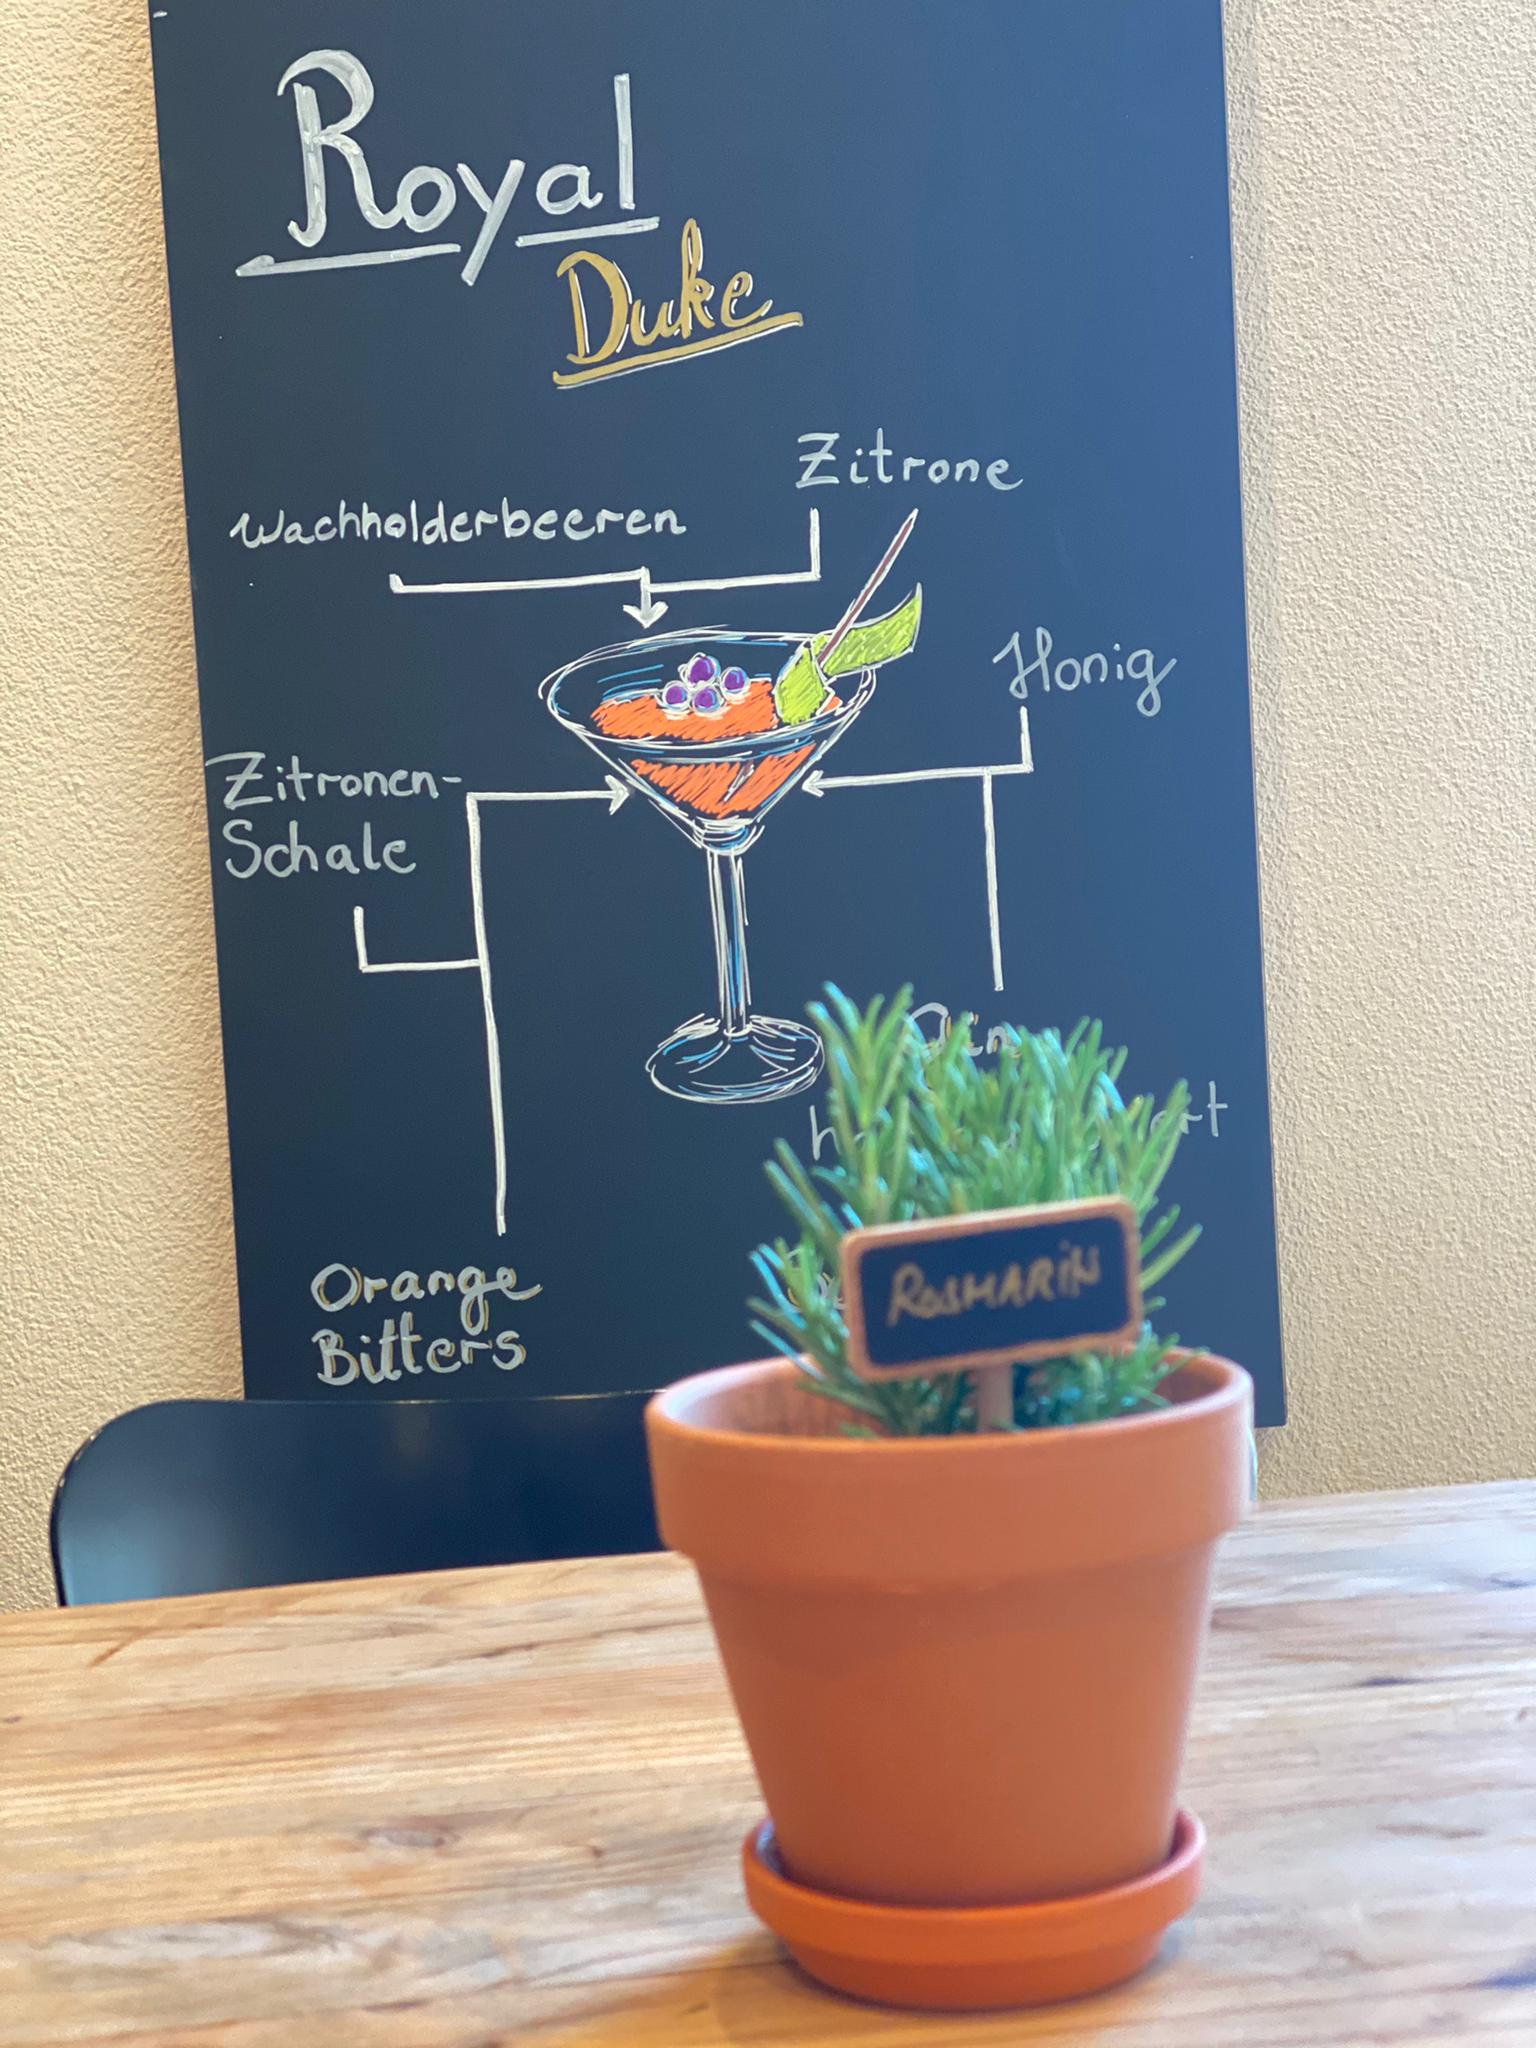 Royal
Duke
Zitrone
Wachholderbeeren
Honig
Zitronen-
Schale
Gin
Orange
Bitters
ROSMARIN